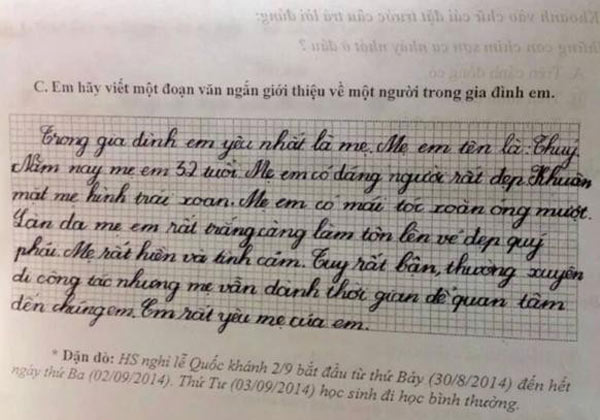 C. Em hãy viết một đoạn văn ngắn giới thiệu về một người trong gia đình em.
Trong gia đình em yêu nhất là mẹ. Mẹ em tên là: Thuý.
Năm nay mẹ em 32 tuổi. Mẹ em có dáng người rất đẹp. Khuân
mặt mẹ hình trái xoan. Mẹ em có mái tóc xoăn óng mượt.
Làn da mẹ em rất trắng càng làm tôn lên vẻ đẹp quý
phái. Mẹ rất hiền và tình cảm. Tuy rất bận, thường xuyên
đi công tác nhưng mẹ vẫn dành thời gian để quan tâm
đến chúng em. Em rất yêu mẹ của em.
* Dặn dò: HS nghỉ lễ Quốc khánh 2/9 bắt đầu từ thứ Bảy (30/8/2014) đến hết
ngày thứ Ba (02/09/2014). Thứ Tư (03/09/2014) học sinh đi học bình thường.